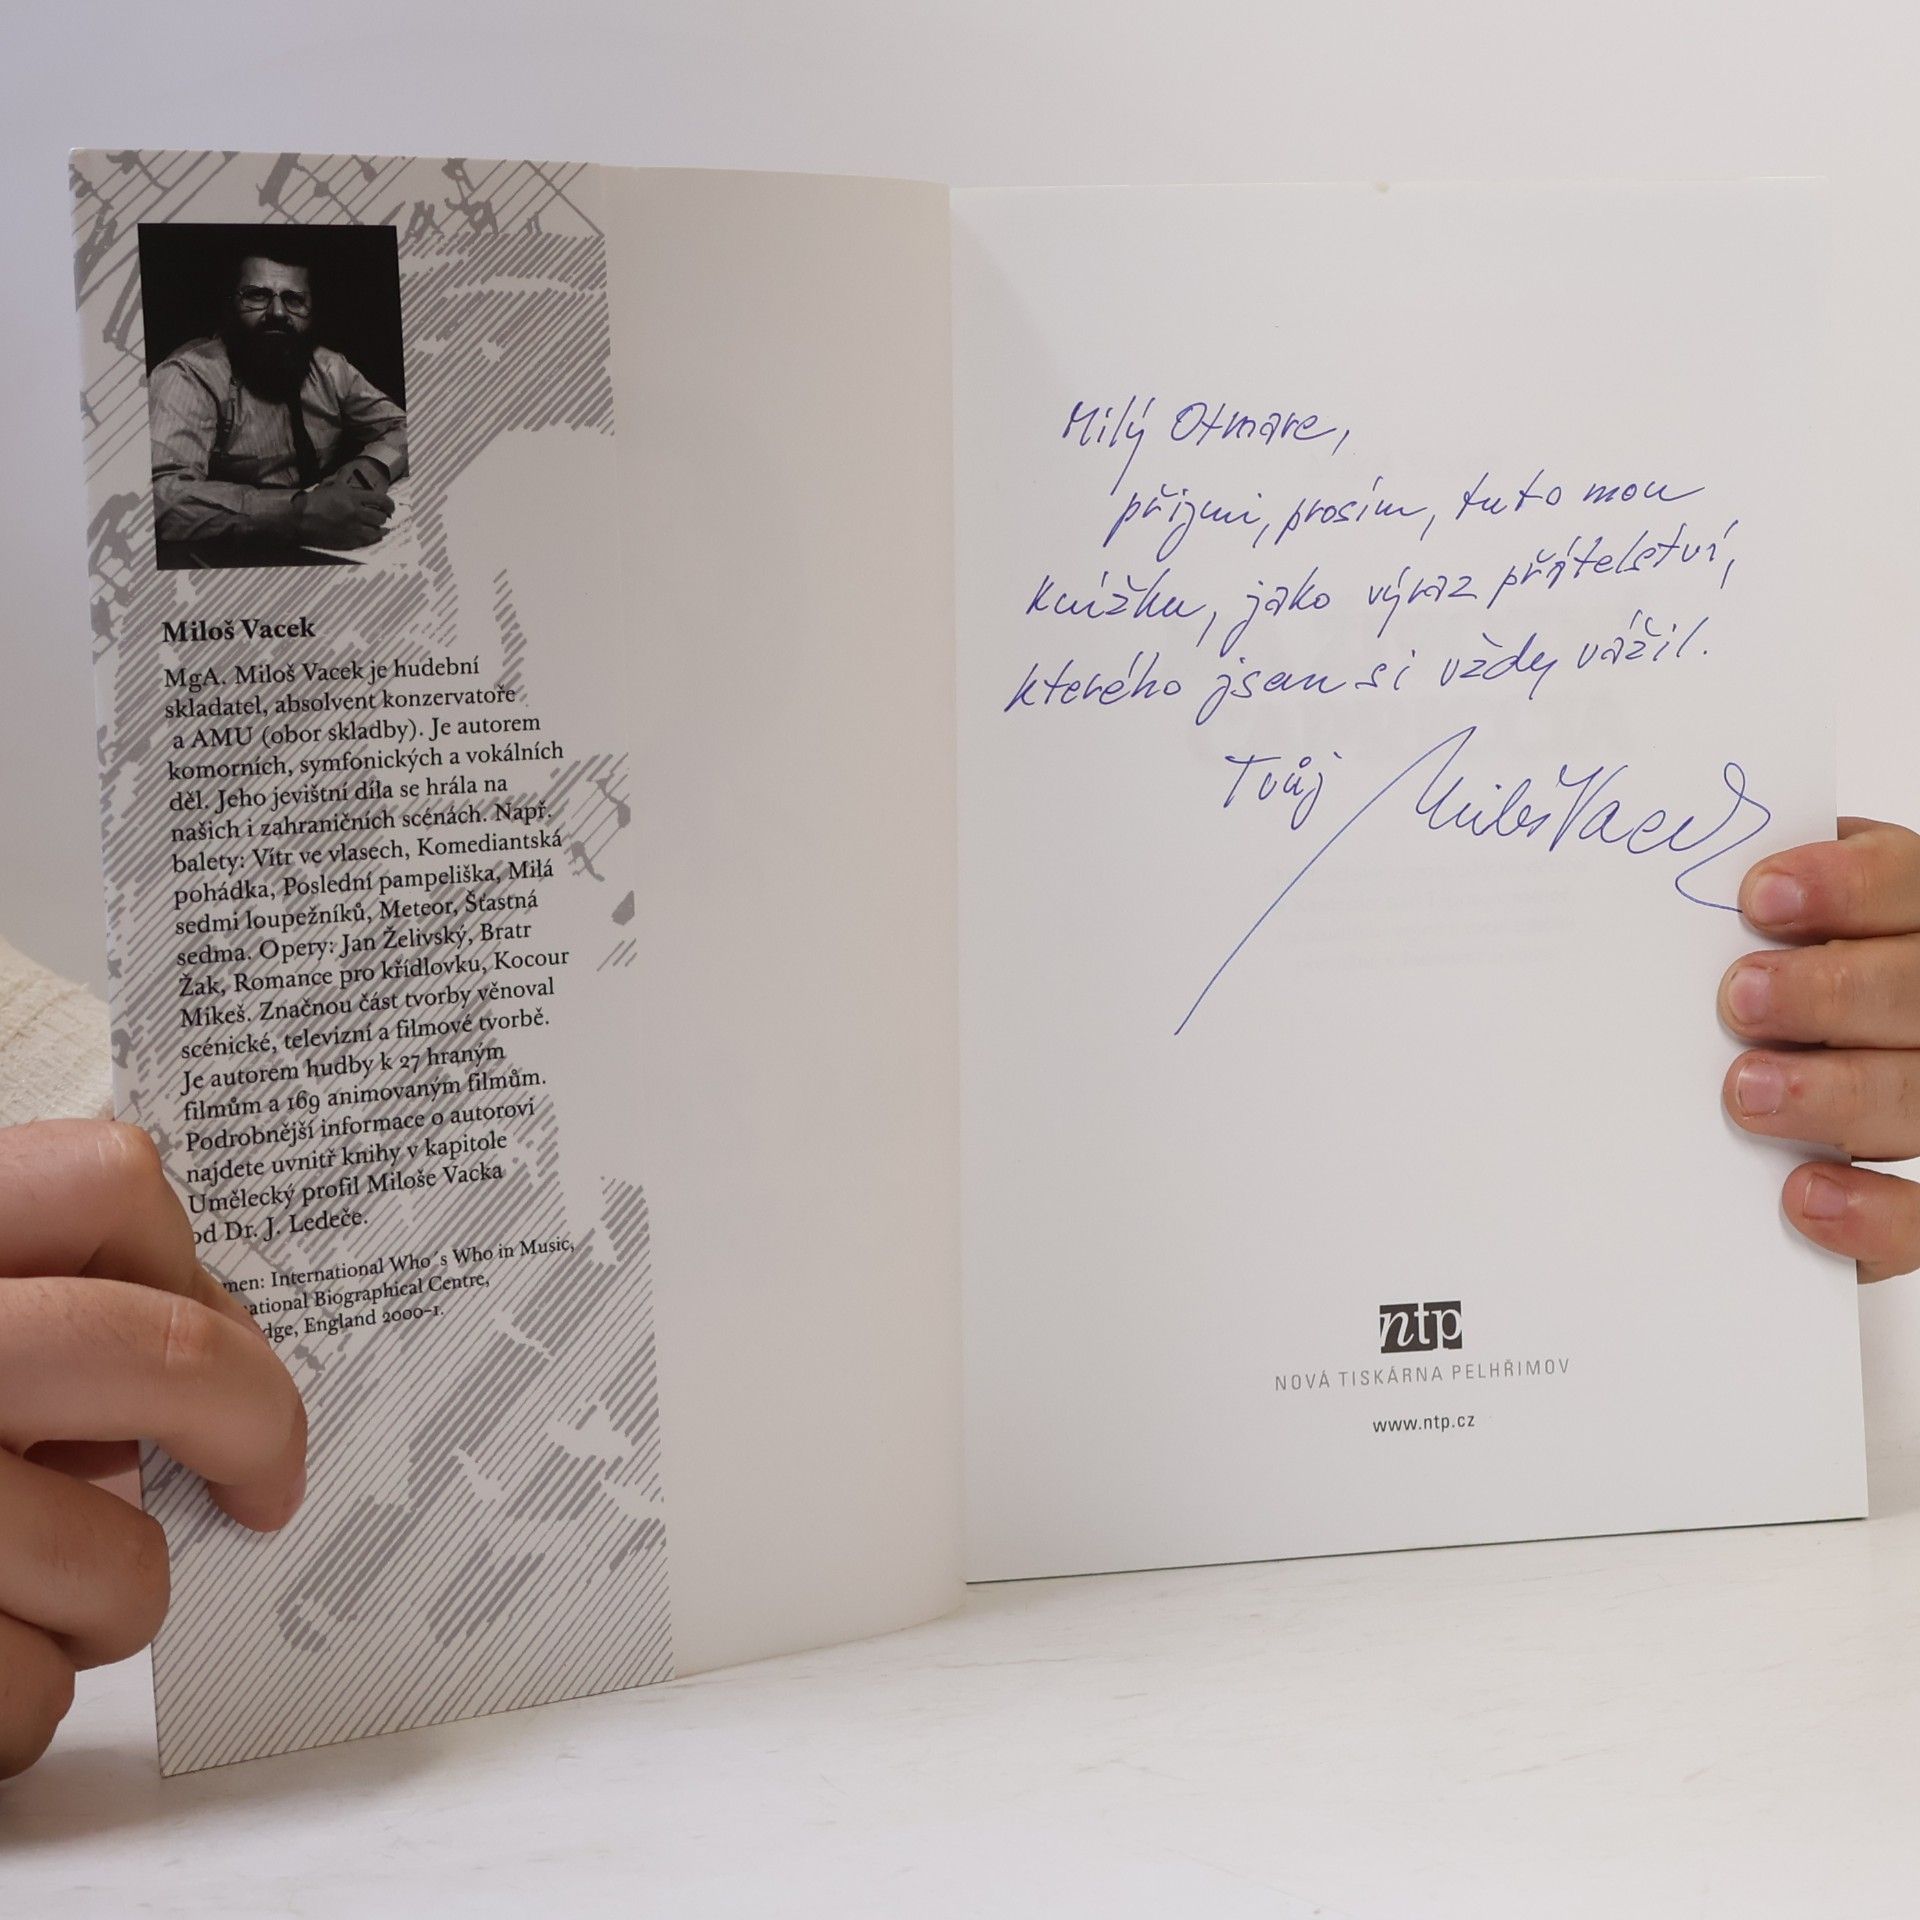 Miloš Vacek
MgA. Miloš Vacek je hudební
skladatel, absolvent konzervatoře
a AMU (obor skladby). Je autorem
komorních, symfonických a vokálních
děl. Jeho jevištní díla se hrála na
našich i zahraničních scénách. Např.
balety: Vítr ve vlasech, Komediantská
pohádka, Poslední pampeliška, Milá
sedmi loupežníků, Meteor, Šťastná
sedma. Opery: Jan Želivský, Bratr
Žak, Romance pro křídlovku, Kocour
Mikeš. Značnou část tvorby věnoval
scénické, televizní a filmové tvorbě.
Je autorem hudby k 27 hraným
filmům a 169 animovaným filmům.
Podrobnější informace o autorovi
najdete uvnitř knihy v kapitole
Umělecký profil Miloše Vacka
od Dr. J. Ledeče.
International Who´s Who in Music,
Biographical Centre,
England 2000-1.
Milý Otmare,
přijmi, prosím, tuto mou
knížku, jako výraz přátelství,
kterého jsem si vždy vážil.
Tvůj Miloš Vacek
ntp
NOVÁ TISKÁRNA PELHŘIMOV
www.ntp.cz